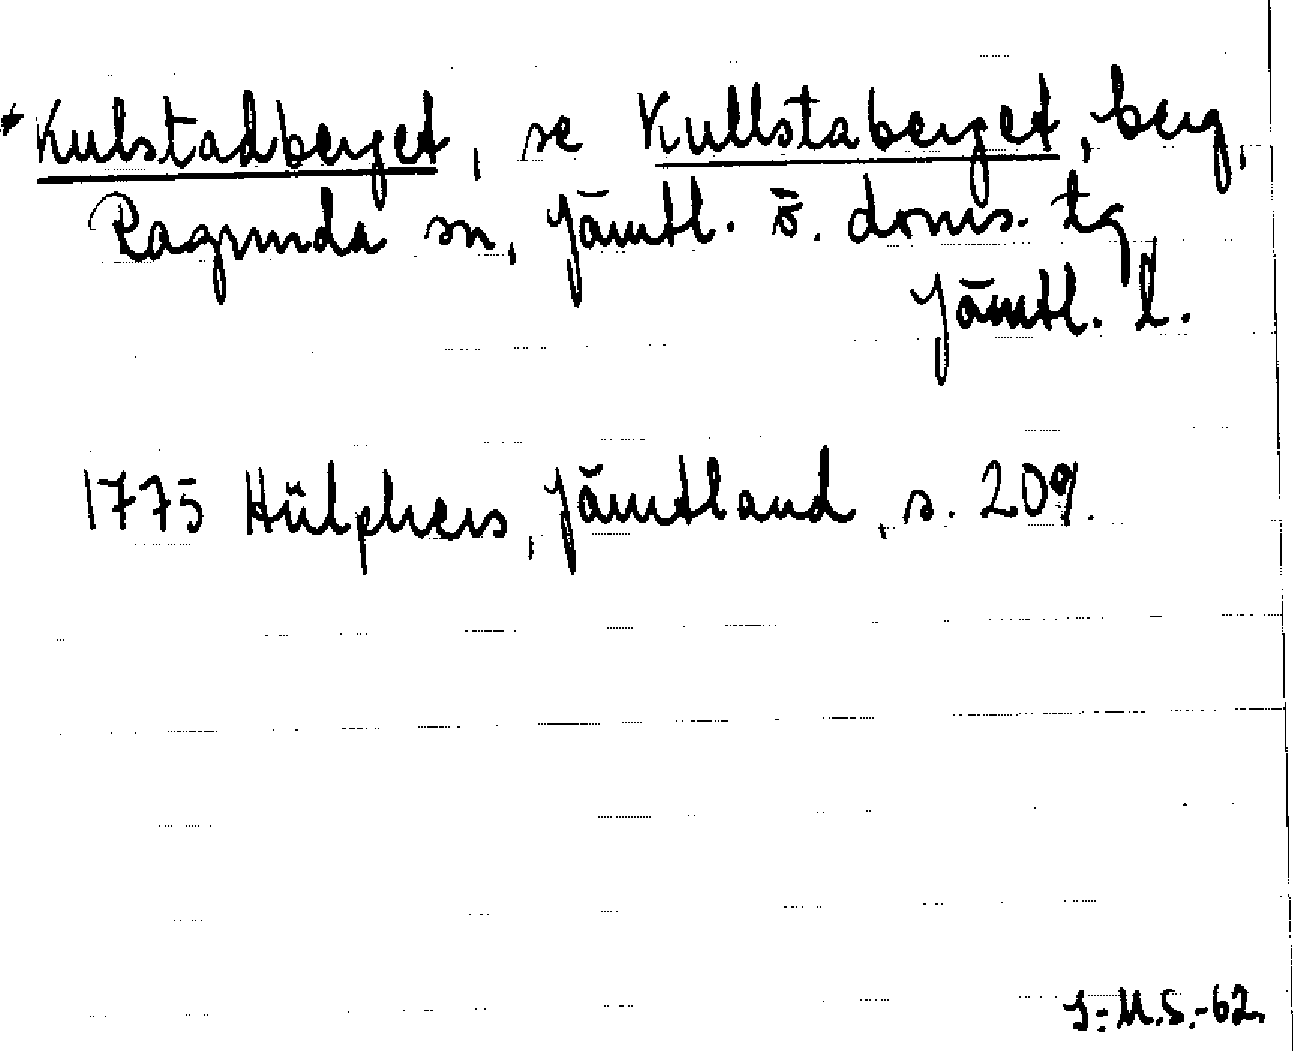 *Kulstadberget, se Kullstaberget, berg,
Ragunda sn, Jämtl. ö. doms. tg
Jämtl. l.
1775 Hülphers, Jämtland, s. 209.
I-M.S.-62.